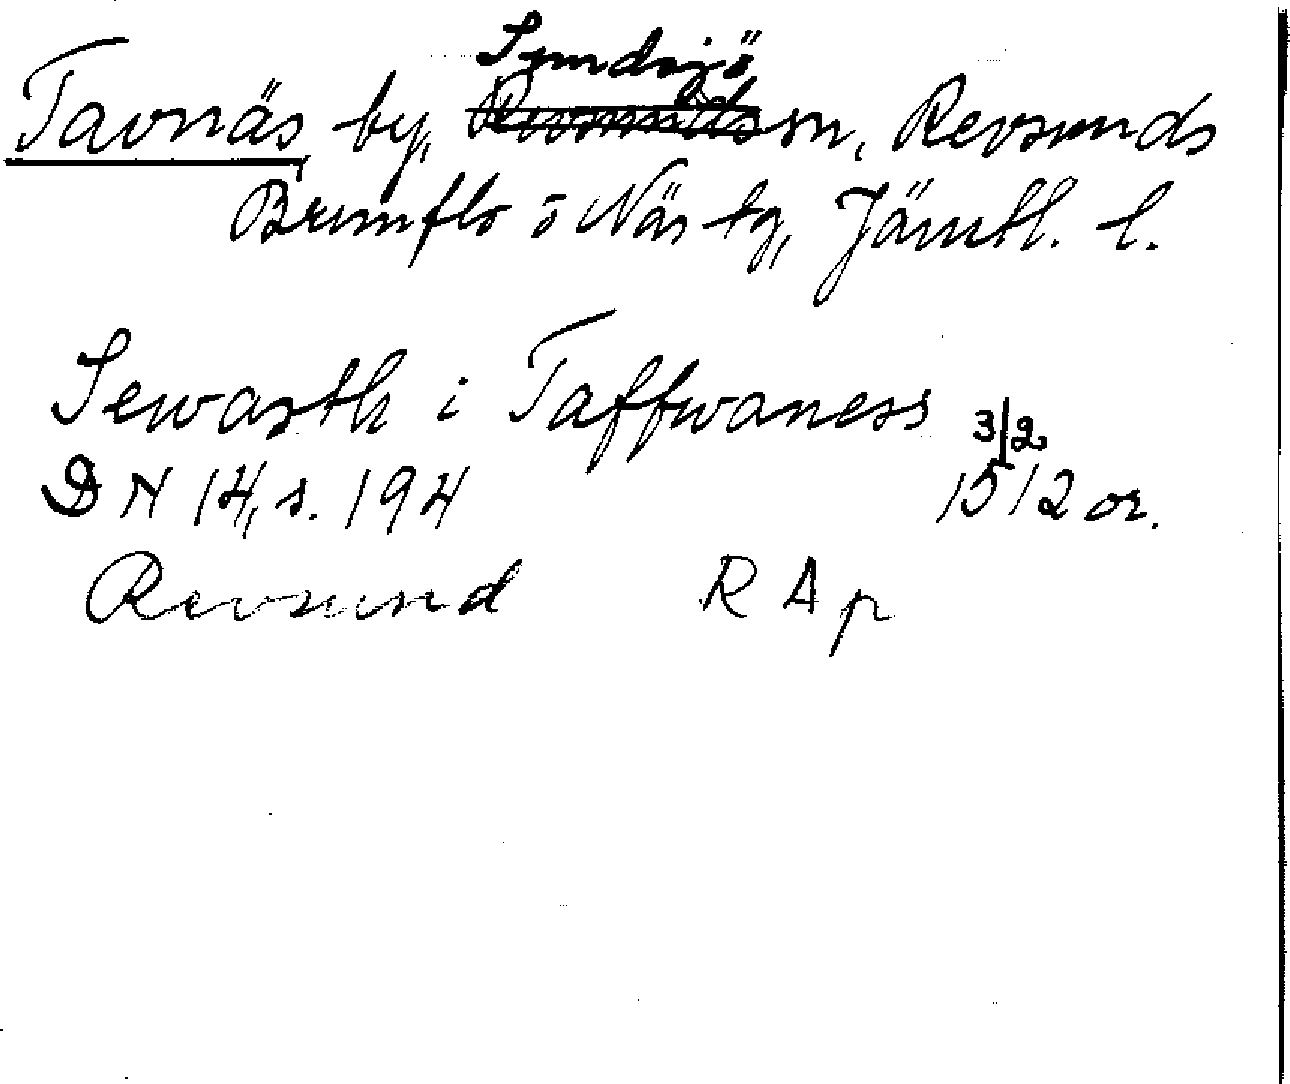 Sundsjö
Tavnäs by, Revsunds sn, Revsunds
Brunflo o Näs tg, Jämtl. l.
Sewasth i Taffwaness 3/2
DN 14, s. 194 1512 or.
Revsund R A p